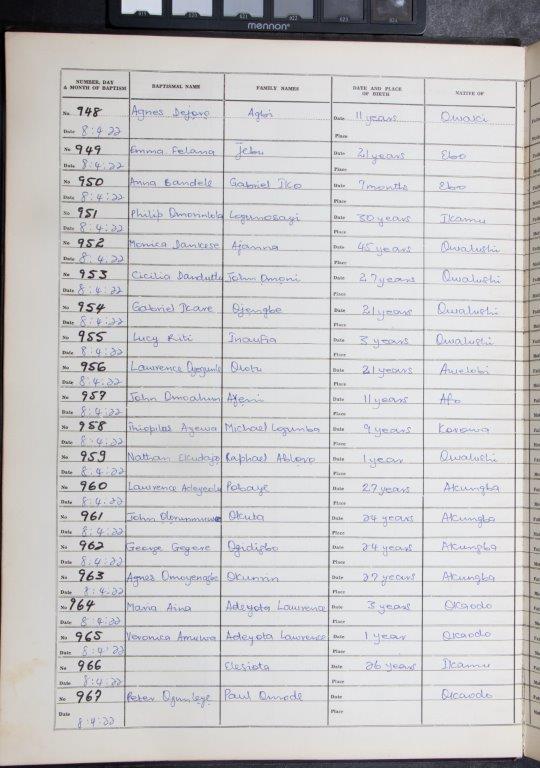 019 020 021 022 023 024
mennon
NUMBER, DAY & MONTH OF BAPTISM BAPTISMAL NAME FAMILY NAMES DATE AND PLACE OF BIRTH NATIVE OF
No 948 Agnes Agbi Date 11 years
Date 8:4:22 Place
No 949 Emma Felama Jebu Date 21 years Ebo
Date 8:4:22 Place
No 950 Anna Bandele Gabriel Iko Date 7 months Ebo
Date 8:4:22 Place
No 951 Philip Logumosayi Date 30 years Ikamu
Date 8:4:22 Place
No 952 Monica Dankese Ajanna Date 45 years Owalushi
Date 8:4:22 Place
No 953 Cicilia John Omoni Date 27 years Owalushi
Date 8:4:22 Place
No 954 Gabriel Ikare Ojengbe Date 21 years Owalushi
Date 8:4:22 Place
No 955 Lucy Riti Inaufia Date 3 years Owalushi
Date 8:4:22 Place
No 956 Lawrence Olotu Date 21 years Awelobi
Date 8:4:22 Place
No 957 John Ayeni Date 11 years Afo
Date 8:4:22 Place
No 958 Thiopilas Azewa Michael Logumba Date 9 years Korowa
Date 8:4:22 Place
No 959 Nathan Raphael Date 1 year Owalushi
Date 8:4:22 Place
No 960 Lawrence Date 27 years Akungba
Date 8:4:22 Place
No 961 John Okuta Date 24 years Akungba
Date 8:4:22 Place
No 962 George Gegere Ogidigbo Date 24 years Akungba
Date 8:4:22 Place
No 963 Agnes Omoyengbe Okunrin Date 27 years Akungba
Date 8:4:22 Place
No 964 Maria Aina Adeyota Lawrence Date 3 years Okaodo
Date 8:4:22 Place
No 965 Veronica Amuwa Adeyota Lawrence Date 1 year Okaodo
Date 8:4:22 Place
No 966 Elesiota Date 26 years Ikamu
Date 8:4:22 Place
No 967 Peter Ogunleye Paul Omode Date Okaodo
Date 8:4:22 Place